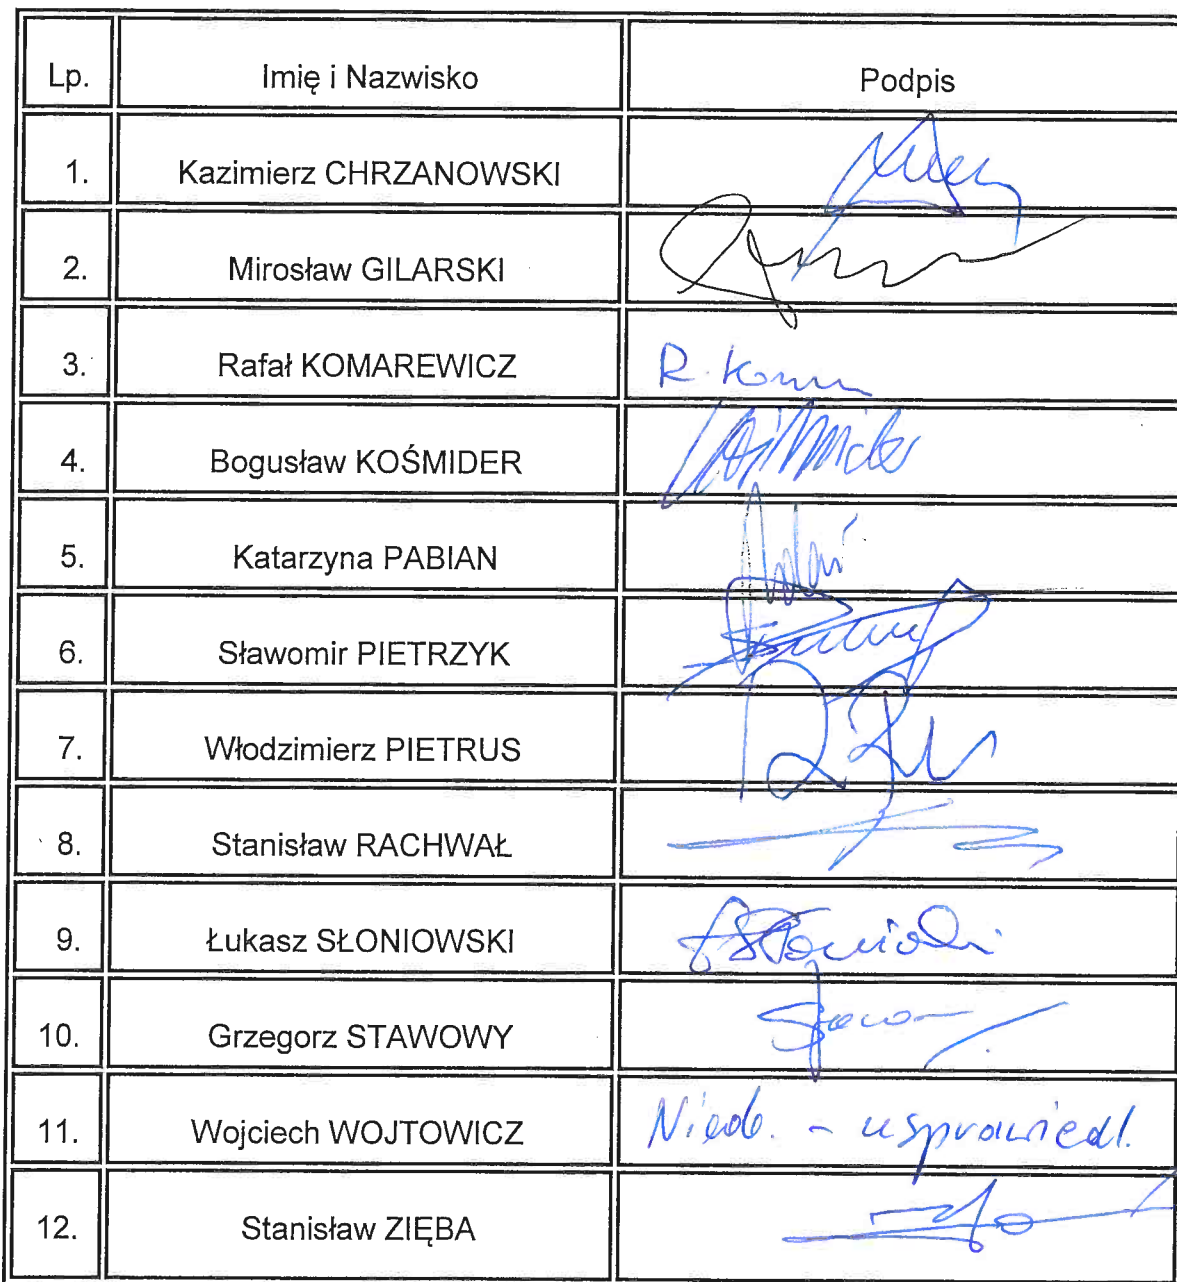 Lp. Imię i Nazwisko Podpis
1. Kazimierz CHRZANOWSKI
2. Mirosław GILARSKI
3. Rafał KOMAREWICZ R. Kom
4. Bogusław KOŚMIDER
5. Katarzyna PABIAN
6. Sławomir PIETRZYK
7. Włodzimierz PIETRUS
8. Stanisław RACHWAŁ
9. Łukasz SŁONIOWSKI
10. Grzegorz STAWOWY
11. Wojciech WOJTOWICZ Nieob. - usprawiedl.
12. Stanisław ZIĘBA